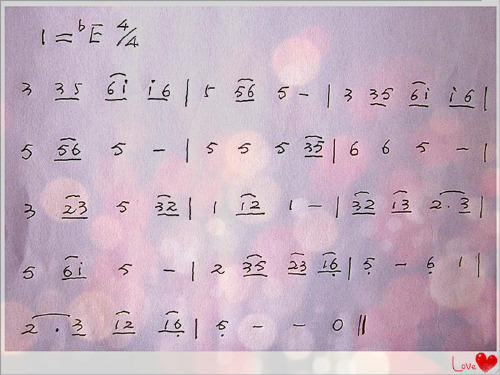 1=ᵇE 4/4
3 35 6i i6 | 5 56 5 - | 3 35 6i i6 |
5 56 5 - | 5 5 5 35 | 6 6 5 - |
3 23 5 32 | 1 12 1 - | 32 13 2.3 |
5 6i 5 - | 2 35 23 16̣ | 5̣ - 6̣ 1 |
2 . 3 12 16̣ | 5̣ - - 0 ||
Love